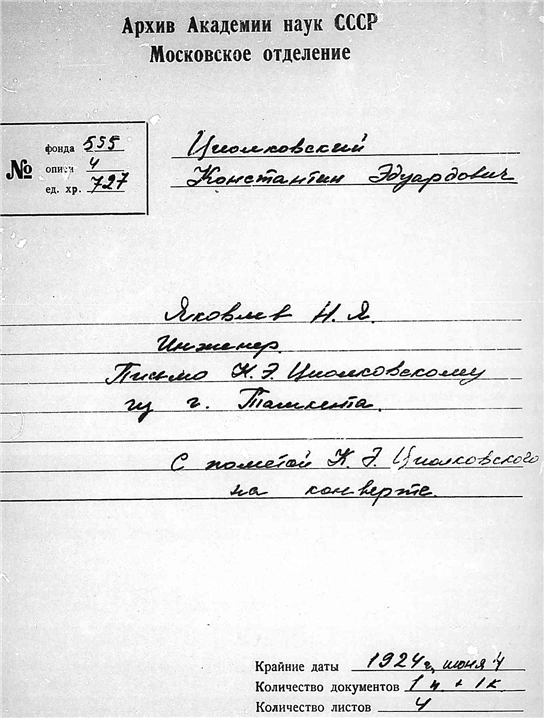 Архив Академии наук СССР
Московское отделение
№
фонда 555
описи 4
ед. хр. 727
Циолковский
Константин Эдуардович
Яковлев Н. Я.
Инженер.
Письмо К. Э. Циолковскому
из г. Ташкента.
С пометой К. Э. Циолковского
на конверте.
Крайние даты 1924 г, июня 4
Количество документов 1 п. + 1 к
Количество листов 4